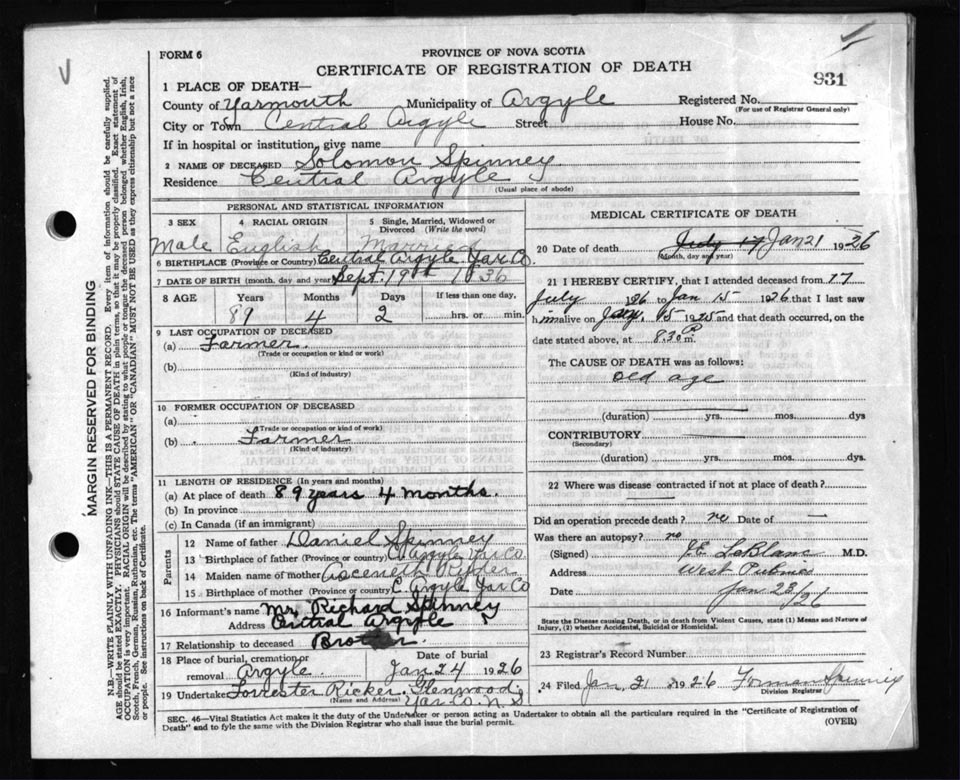 FORM 6
PROVINCE OF NOVA SCOTIA
CERTIFICATE OF REGISTRATION OF DEATH
931
1 PLACE OF DEATH—
County of Yarmouth Municipality of Argyle Registered No.
(For use of Registrar General only)
City or Town Central Argyle Street House No.
If in hospital or institution, give name
2 NAME OF DECEASED Solomon Spinney
Residence Central Argyle
(Usual place of abode)
PERSONAL AND STATISTICAL INFORMATION
3 SEX 4 RACIAL ORIGIN 5 Single, Married, Widowed or Divorced (Write the word)
Male English Married
6 BIRTHPLACE (Province or Country) Central Argyle Yar Co.
7 DATE OF BIRTH (month, day and year) Sept. 19th 1836
8 AGE Years Months Days If less than one day,
89 4 2 hrs. or min.
9 LAST OCCUPATION OF DECEASED
(a) Farmer.
(Trade or occupation or kind or work)
(b)
(Kind of industry)
10 FORMER OCCUPATION OF DECEASED
(a)
(Trade or occupation or kind of work)
(b) Farmer
(Kind of industry)
11 LENGTH OF RESIDENCE (In years and months)
(a) At place of death 89 years 4 months.
(b) In province
(c) In Canada (if an immigrant)
Parents
12 Name of father Daniel Spinney
13 Birthplace of father (Province or country) C. Argyle Yar Co
14 Maiden name of mother Asceneth Ryder
15 Birthplace of mother (Province or country) C Argyle Yar Co
16 Informant's name Mr. Richard Spinney
Address Central Argyle
17 Relationship to deceased Brother.
18 Place of burial, cremation or removal Argyle Date of burial Jan 24 1926
19 Undertaker Forrester Ricker. Glenwood
(Name and Address) Yar Co. N.S
MEDICAL CERTIFICATE OF DEATH
20 Date of death July 17 Jan 21 1926
(Month, day and year)
21 I HEREBY CERTIFY, that I attended deceased from 17
July 196 to Jan 15 1926 that I last saw
him alive on Jan. 15 1925 and that death occurred, on the
date stated above, at 8.30 P m.
The CAUSE OF DEATH was as follows:
old age
(duration) yrs. mos. dys
CONTRIBUTORY
(Secondary)
(duration) yrs. mos. dys
22 Where was disease contracted if not at place of death?
Did an operation precede death? no Date of —
Was there an autopsy? no
(Signed) J.E. LeBlanc M.D.
Address West Pubnico
Date Jan 23/26
State the Disease causing Death, or in death from Violent Causes, state (1) Means and Nature of Injury, (2) whether Accidental, Suicidal or Homicidal.
23 Registrar's Record Number
24 Filed Jan. 21 1926 Forman Spinney
Division Registrar
SEC. 46—Vital Statistics Act makes it the duty of the Undertaker or person acting as Undertaker to obtain all the particulars required in the "Certificate of Registration of Death" and to fyle the same with the Division Registrar who shall issue the burial permit.
(OVER)
MARGIN RESERVED FOR BINDING
N.B.—WRITE PLAINLY WITH UNFADING INK—THIS IS A PERMANENT RECORD. Every item of information should be carefully supplied.
AGE should be stated EXACTLY. PHYSICIANS should STATE CAUSE OF DEATH in plain terms, so that it may be properly classified. Exact statement of
OCCUPATION is very important. RACIAL ORIGIN will be described by stating to what people or tongue the deceased person belonged, whether English, Irish,
Scotch, French, German, Russian, Ruthenian, etc. The terms "AMERICAN" OR "CANADIAN" MUST NOT BE USED as they express citizenship but not a race
or people. See instructions on back of Certificate.